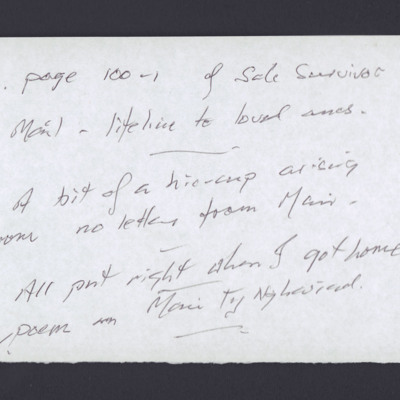 . page 100-1 of Sole Survivor
Mail - lifeline to loved ones.
A bit of a hic-cup arising
no letters from Mair -
All put right when I got home
poem on Mair Ty